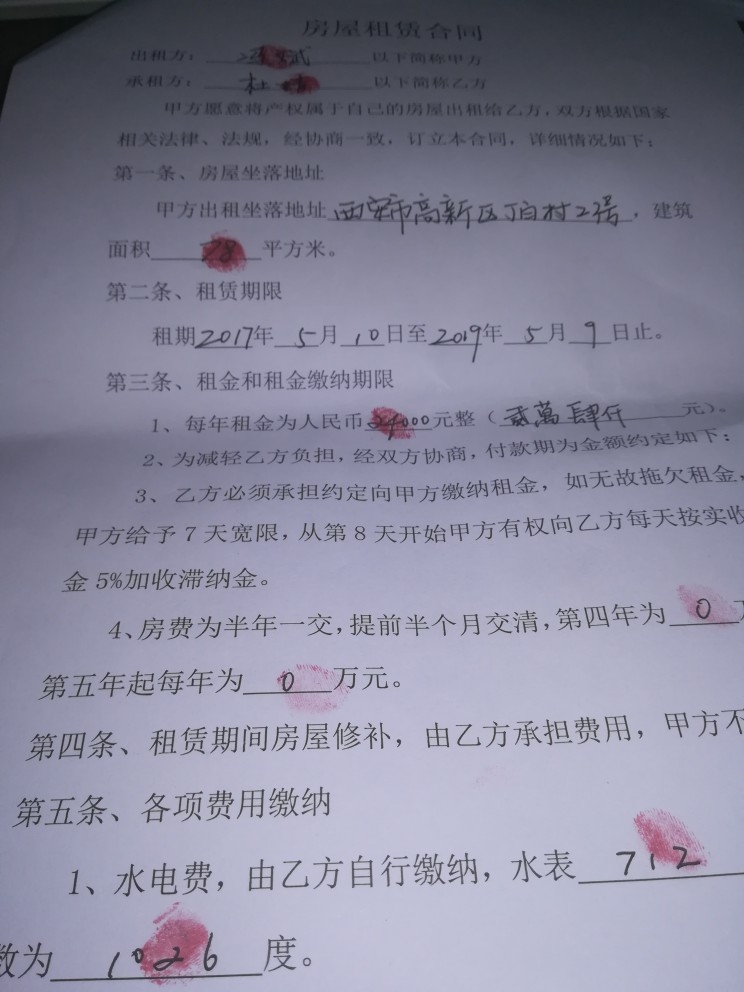 房屋租赁合同
出租方： 斌 以下简称甲方
承租方： 杜 以下简称乙方
甲方愿意将产权属于自己的房屋出租给乙方，双方根据国家
相关法律、法规，经协商一致，订立本合同，详细情况如下：
第一条、房屋坐落地址
甲方出租坐落地址西安市高新区丁白村2号，建筑
面积78平方米。
第二条、租赁期限
租期2017年5月10日至2019年5月9日止。
第三条、租金和租金缴纳期限
1、每年租金为人民币24000元整（贰萬肆仟元）。
2、为减轻乙方负担，经双方协商，付款期为金额约定如下：
3、乙方必须承担约定向甲方缴纳租金，如无故拖欠租金，
甲方给予7天宽限，从第8天开始甲方有权向乙方每天按实收
金5%加收滞纳金。
4、房费为半年一交，提前半个月交清，第四年为0
第五年起每年为0万元。
第四条、租赁期间房屋修补，由乙方承担费用，甲方不
第五条、各项费用缴纳
1、水电费，由乙方自行缴纳，水表712
数为1026度。